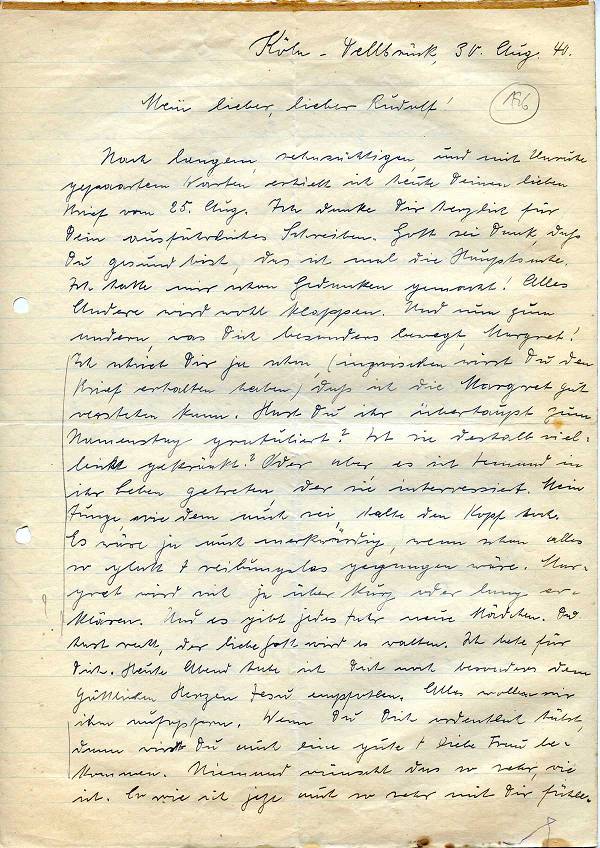 Köln-Dellbrück, 30. Aug. 40.
176
Mein lieber, lieber Rudolf!
Nach langem, sehnsüchtigen, und mit Unruhe
gepaartem Warten, erhielt ich heute Deinen lieben
Brief vom 25. Aug. Ich danke Dir herzlich für
Dein ausführliches Schreiben. Gott sei Dank, daß
Du gesund bist, das ist mal die Hauptsache.
Ich hatte mir schon Gedanken gemacht! Alles
Andere wird wohl klappen. Und nun zum
andern, was Dich besonders bewegt, Margret!
Ich schrieb Dir ja schon, (inzwischen wirst Du den
Brief erhalten haben) daß ich die Margret gut
verstehen kann. Hast Du ihr überhaupt zum
Namenstag gratuliert? Ist sie deshalb viel-
leicht gekränkt? Oder aber es ist Jemand in
ihr Leben getreten, der sie interressiert. Mein
Junge, wie dem auch sei, halte den Kopf hoch.
Es wäre ja auch merkwürdig, wenn schon alles
so glatt + reibungslos gegangen wäre. Mar-
gret wird sich ja über kurz oder lang er-
klären. Und es gibt jedes Jahr neue Mädchen. Du
hast recht, der liebe Gott wird es walten. Ich bete für
Dich. Heute Abend habe ich Dich noch besonders dem
Göttlichen Herzen Jesu empfohlen. Alles wollen wir
ihm aufopfern. Wenn Du Dich ordentlich hälst,
dann wirst Du auch eine gute + liebe Frau be-
kommen. Niemand wünscht das so sehr, wie
ich. So wie ich jetzt auch so sehr mit Dir fühle.